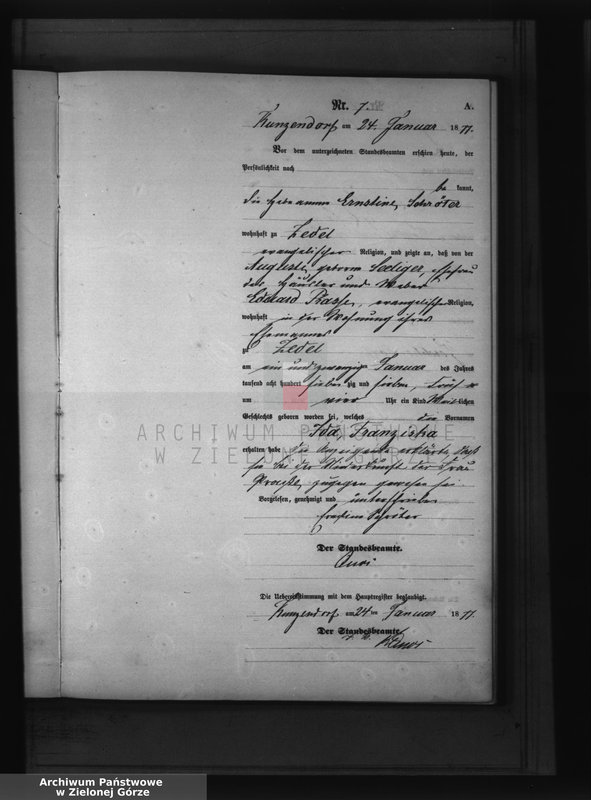 Nr. 7. A.
Kunzendorf am 24. Januar 1877.
Vor dem unterzeichneten Standesbeamten erschien heute, der
Persönlichkeit nach
be kannt,
die Hebamme Ernstine Schröter
wohnhaft zu Zedel
evangelischer Religion, und zeigte an, daß von der
Auguste, geborene Seeliger, Ehefrau
des Häusler und Weber
Eduard evangelischer Religion,
wohnhaft in der Wohnung ihres
Ehemannes
zu Zedel
am ein und zwanzigsten Januar des Jahres
tausend acht hundert sieben zig und sieben, früh
um vier Uhr ein Kind weiblichen
Geschlechts geboren worden sei, welches die Vornamen
Ida, Franziska
erhalten habe die Anzeigende erklärte, daß
sie bei der Niederkunft der Frau
zugegen gewesen sei
Vorgelesen, genehmigt und unterschrieben
Ernstine Schröter
Der Standesbeamte.
Die Uebereinstimmung mit dem Hauptregister beglaubigt.
Kunzendorf am 24 ten Januar 1877.
Der Standesbeamte.
ARCHIWUM PAŃSTWOWE
W ZIELONEJ GÓRZE
Archiwum Państwowe
w Zielonej Górze